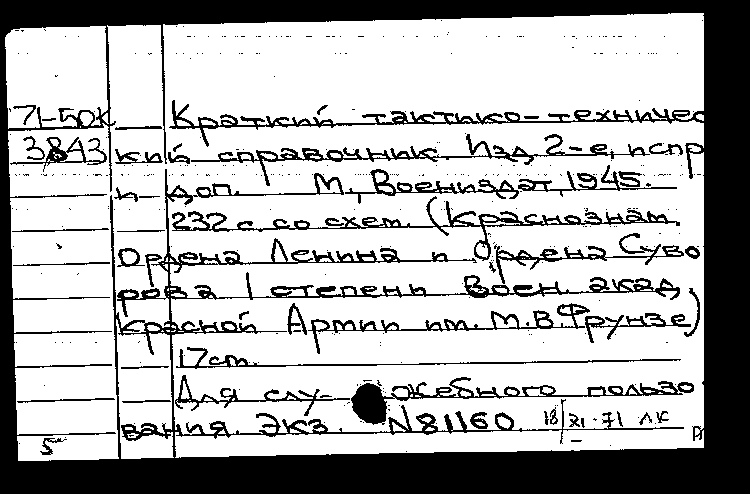 71-50к Краткий тактико-техничес
3843 кий справочник. Изд. 2-е, испр
и доп. М., Воениздат, 1945.
232 с. со схем. (Краснознам.
Ордена Ленина и Ордена Суво
рова I степени Воен. акад.
Красной Армии им. М.В.Фрунзе)
17см.
Для слу- жебного пользо
вания. Экз. N81160. 18/XI-71 ЛК
5